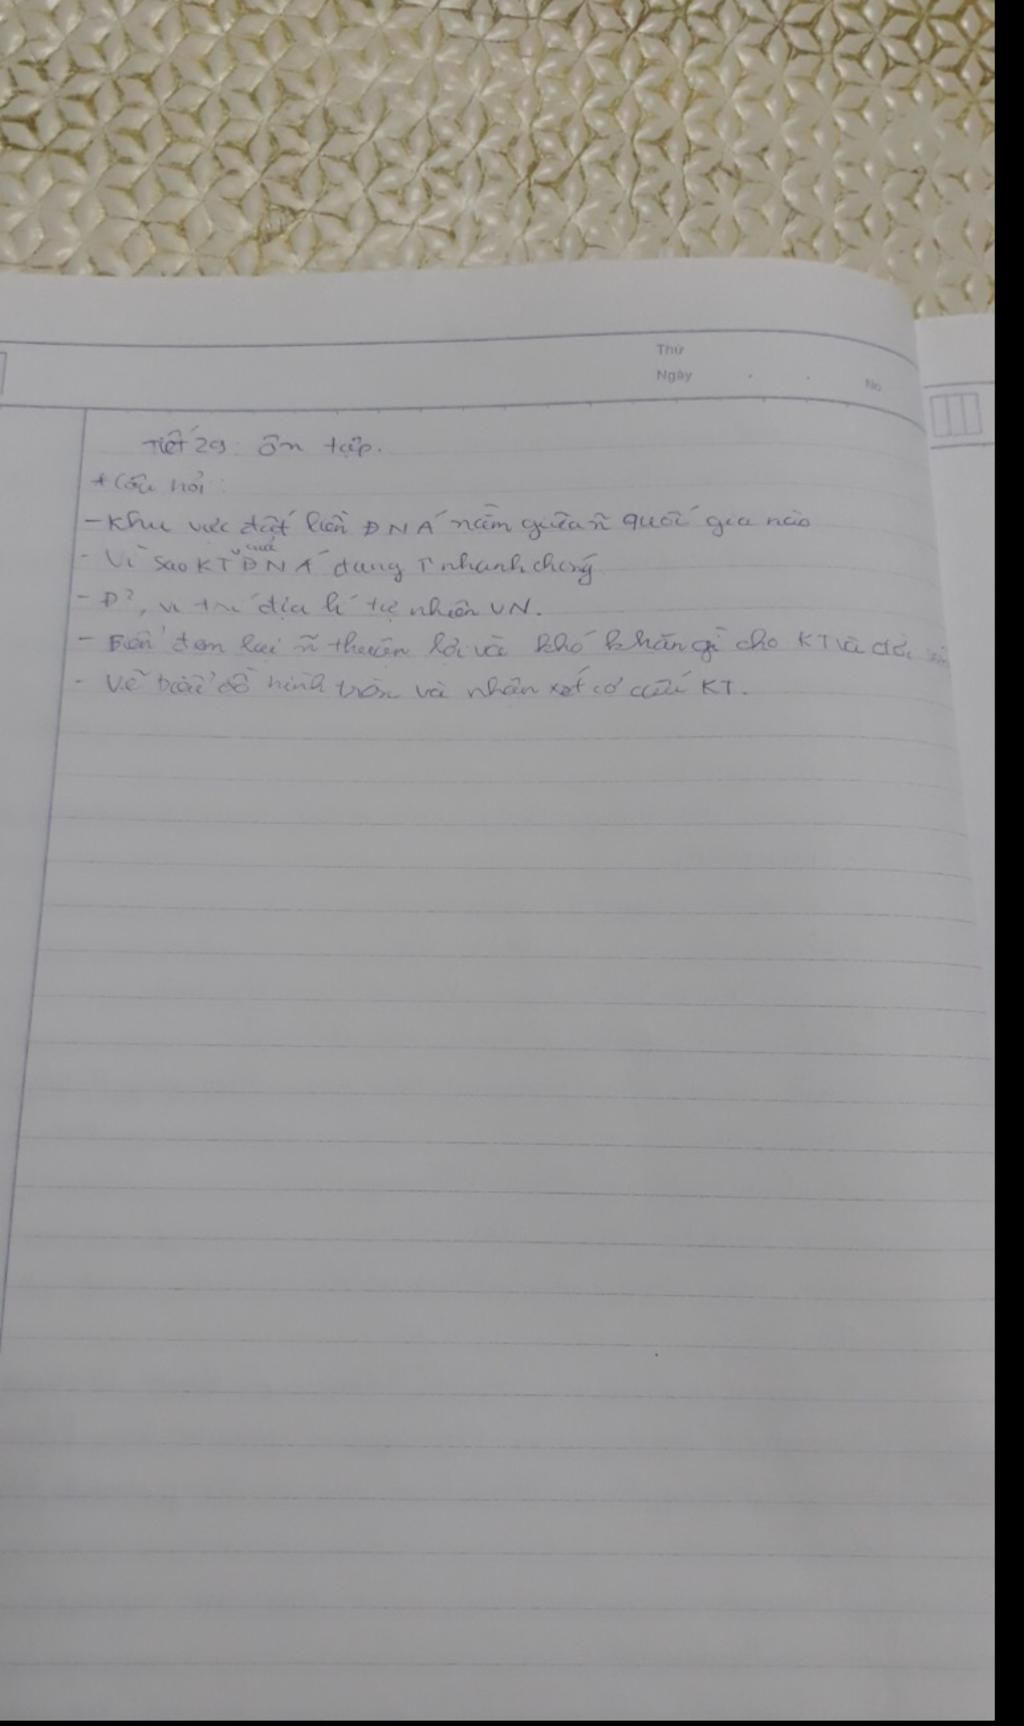 Thứ
Ngày
No
Tiết 29: ôn tập.
+ Câu hỏi:
- Khu vực đất liền ĐNÁ nằm giữa ñ quốc gia nào
- Vì sao KT của ĐNÁ đang nhanh chóng
- Đ², vị trí địa lí tự nhiên VN.
- Biển đem lại ñ thuận lợi và khó khăn gì cho KT và đời
- Vẽ biểu đồ hình tròn và nhận xét cơ cấu KT.